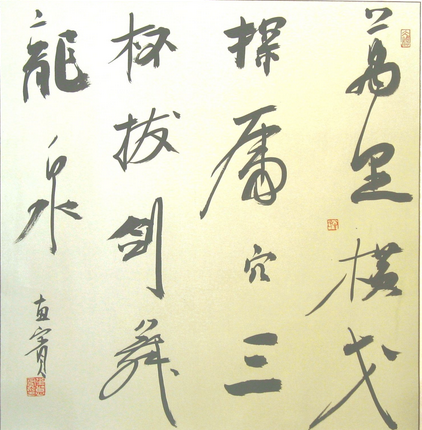 萬里橫戈
探虎穴三
杯拔劍舞
龍泉